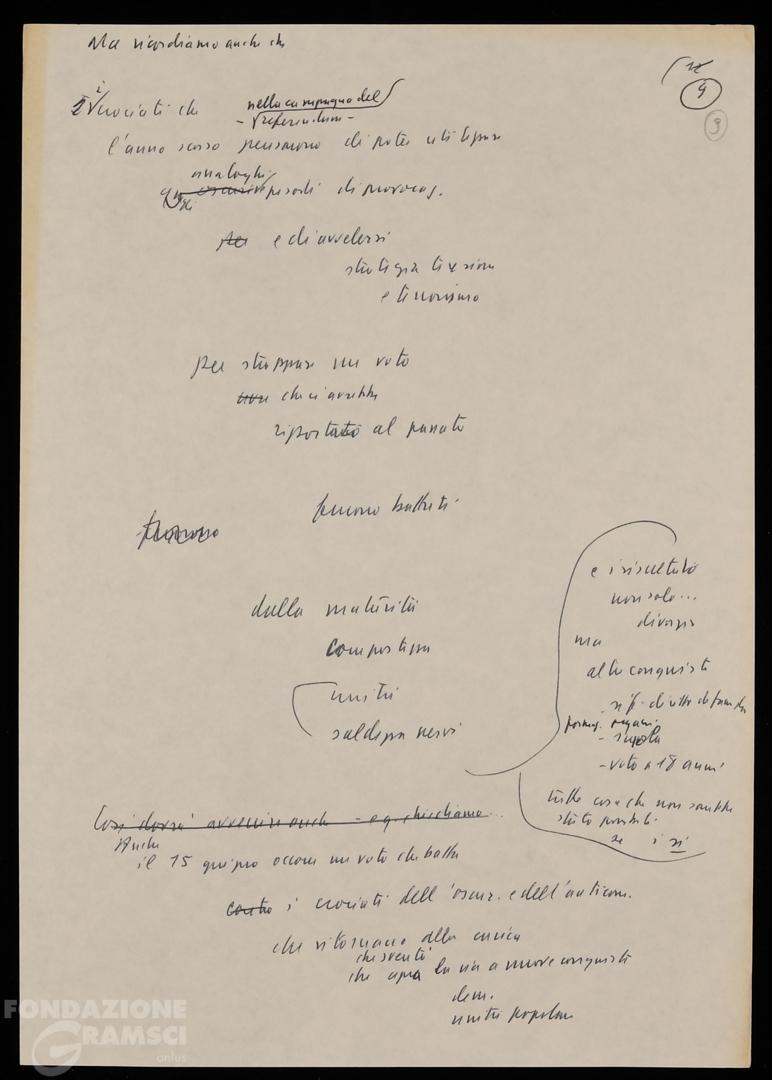 Ma ricordiamo anche che
12
9
9
I crociati che nella campagna del
- referendum -
l'anno scorso pensarono di poter utilizzare
analoghi
episodi di provocaz.
per e di avvelersi
strategia tensione
e terrorismo
per strappare un voto
che ci avrebbe
riportato al passato
furono battuti
furono
dalla maturità
compostezza
unità
saldezza nervi
e i risultato
non solo...
divorzio
ma
altre conquiste
- rif. diritto di famiglia
organi.
- scuola
- voto a 18 anni
tutte cose che non sarebbe
stato possibili
se i sì
Così dovrà avvenire anche - e q. chiediamo...
Anche
il 15 giugno occorre un voto che batta
contro i crociati dell'oscur. e dell'anticom.
che ritornano alla carica
che sventi
che apra la via a nuove conquiste
dem.
unità popolare
FONDAZIONE
GRAMSCI
onlus